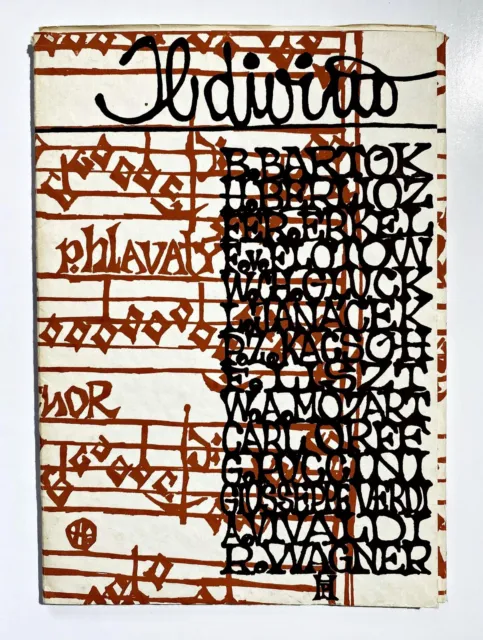 Il divino
B. BARTOK
H. BERLIOZ
FER. ERKEL
F. v. FLOTOW
W. CH. GLUCK
L. JANAČEK
P. Z. KACSOH
F. LISZT
W. A. MOZART
CARL ORFF
G. PUCCINI
GIUSSEPPE VERDI
A. VIVALDI
R. WAGNER
p. hlavaty